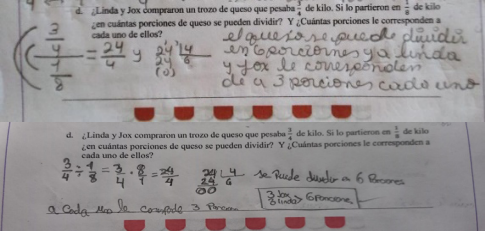 d. ¿Linda y Jox compraron un trozo de queso que pesaba 3/4 de kilo. Si lo partieron en 1/8 de kilo
¿en cuántas porciones de queso se pueden dividir? Y ¿Cuántas porciones le corresponden a
cada uno de ellos?
((3/4)/(1/8) = 24/4 y 24 4
24 6
(0)
el queso se puede dividir
en 6 porciones y a linda
y Jox le corresponden
de a 3 porciones cada uno
d. ¿Linda y Jox compraron un trozo de queso que pesaba 3/4 de kilo. Si lo partieron en 1/8 de kilo
¿en cuántas porciones de queso se pueden dividir? Y ¿Cuántas porciones le corresponden a
cada uno de ellos?
3/4 ÷ 1/8 = 3/4 · 8/1 = 24/4 24 4
24 6
00
se Puede dividir a 6 Porciones
3 Jox
3 Linda > 6 Porciones
a cada uno le 3